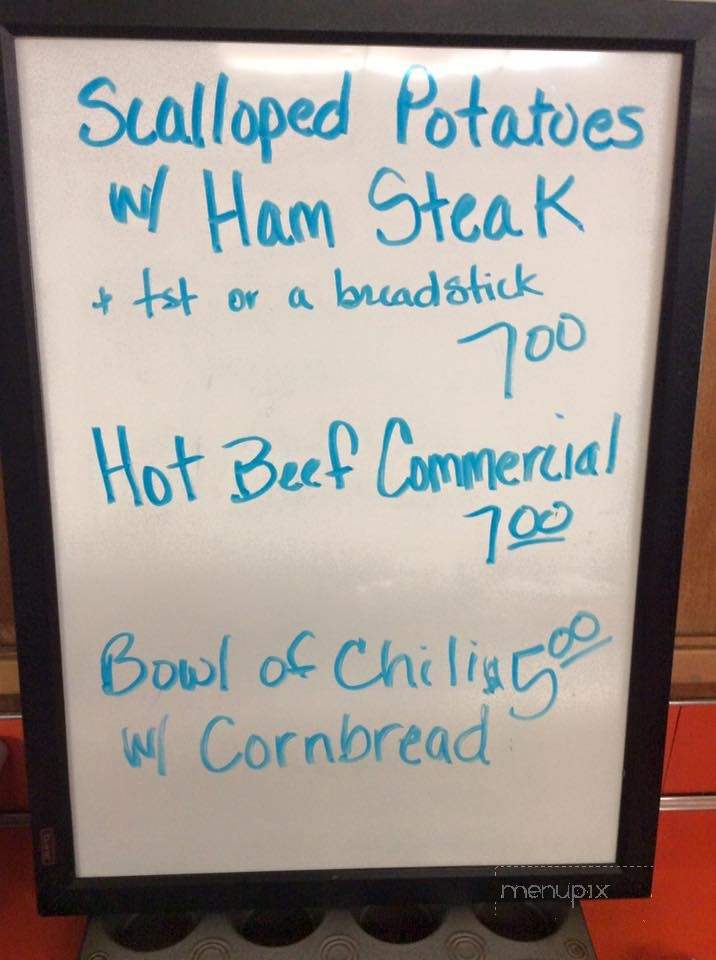 Scalloped Potatoes
w/ Ham Steak
+ tst or a breadstick
7.00
Hot Beef Commercial
7.00
Bowl of Chili $5.00
w/ Cornbread
menupix